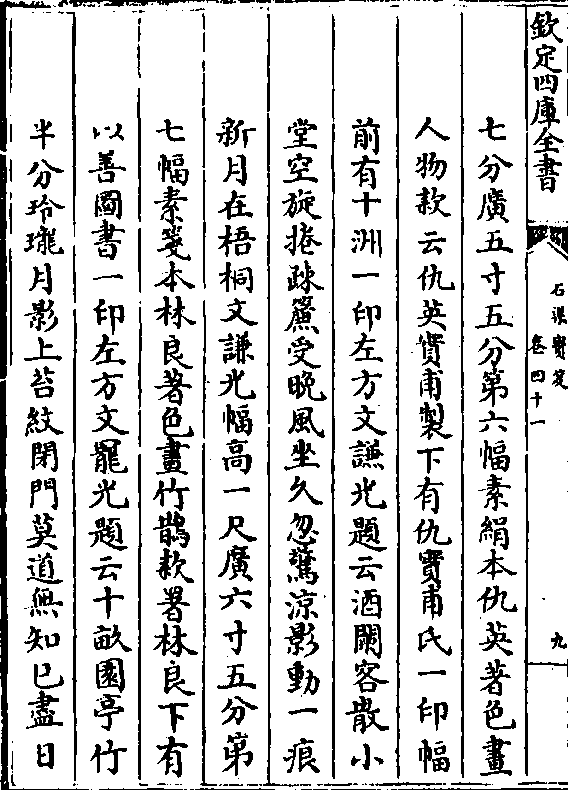 欽定四庫全書
石渠寶笈
卷四十一
九
七分廣五寸五分第六幅素絹本仇英著色畫
人物款云仇英實甫製下有仇實甫氏一印幅
前有十洲一印左方文謙光題云酒闌客散小
堂空旋捲疎簾受晚風坐久忽驚涼影動一痕
新月在梧桐文謙光幅高一尺廣六寸五分第
七幅素箋本林良著色畫竹鵲款署林良下有
以善圖書一印左方文寵光題云十畝園亭竹
半分玲瓏月影上苔紋閉門莫道無知已盡日